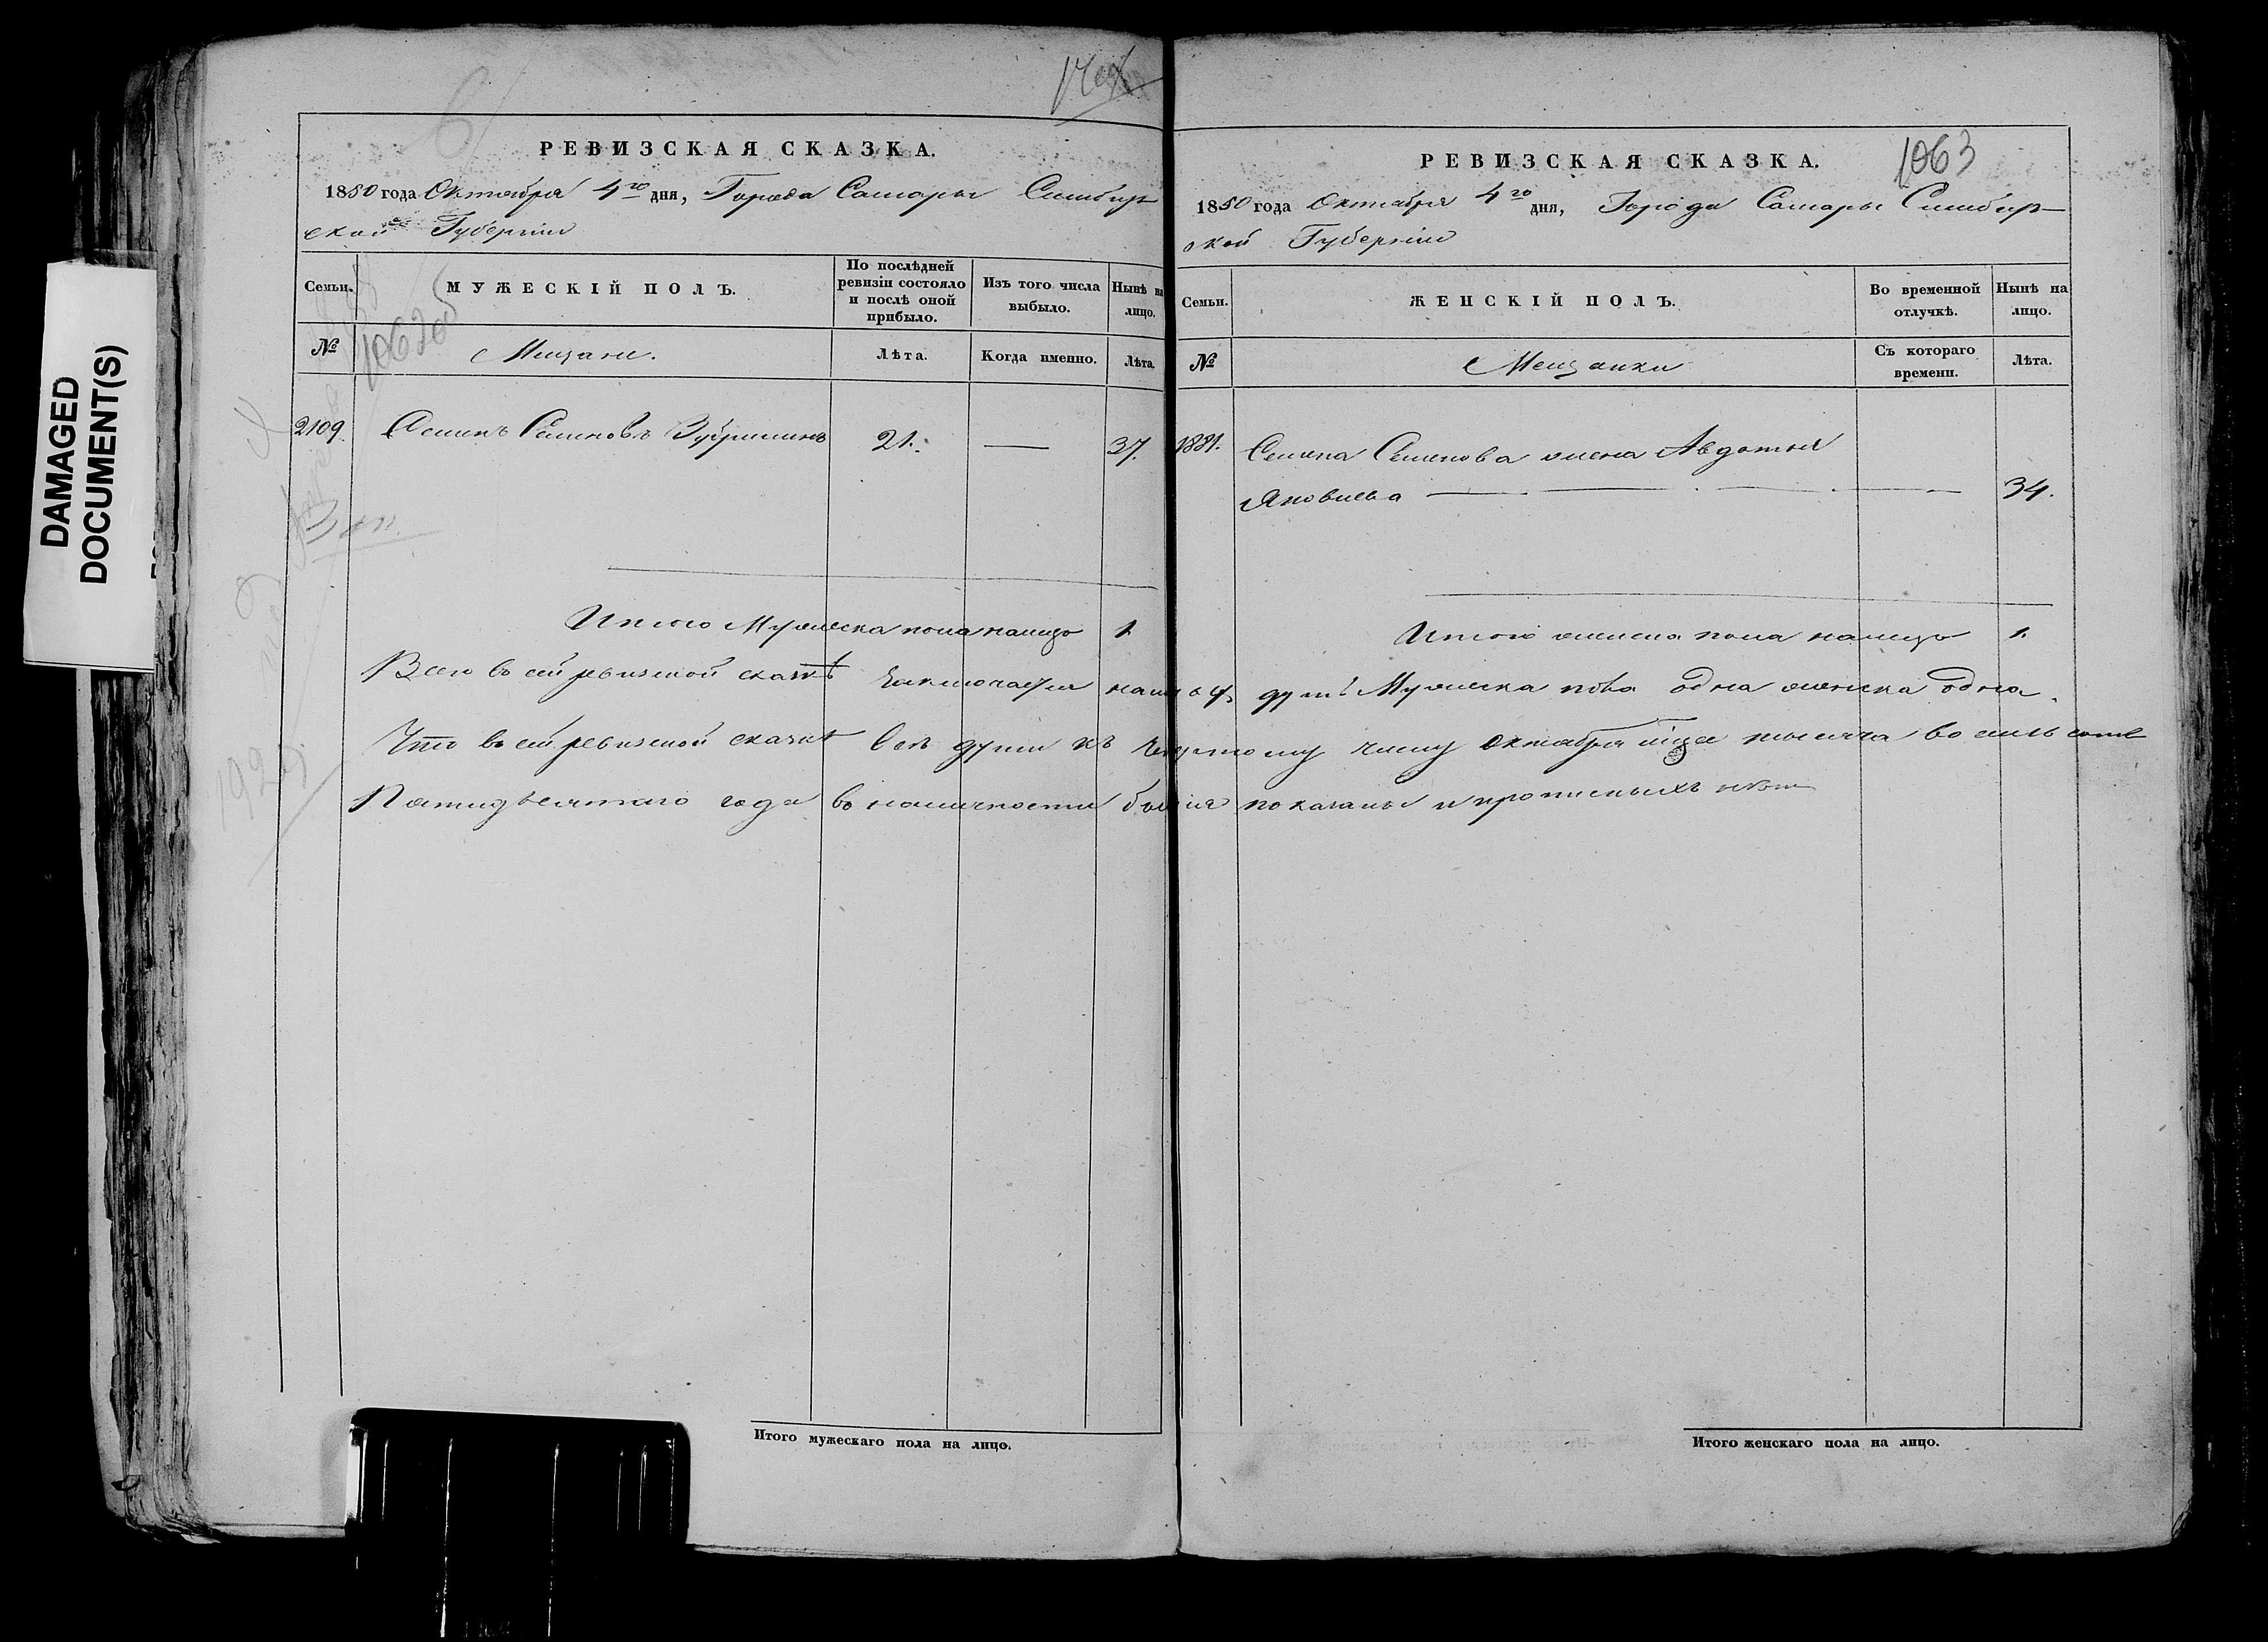 DAMAGED
DOCUMENT(S)
РЕВИЗСКАЯ СКАЗКА.
1850 года Октября 4го дня, Города Самары Симбир-
ской Губернiи
Семьи.
МУЖЕСКІЙ ПОЛЪ.
По послѣдней
ревизіи состояло
и послѣ оной
прибыло.
Изъ того числа
выбыло.
Нынѣ на
лицо.
№
Мещане.
Лѣта.
Когда именно.
Лѣта.
2109.
Семенъ Семеновъ
21.
37.
Итого Мужеска пола налицо 1.
РЕВИЗСКАЯ СКАЗКА.
1063
1850 года Октября 4го дня, Города Самары Симбир-
ской Губернiи
Семьи.
ЖЕНСКІЙ ПОЛЪ.
Во временной
отлучкѣ.
Нынѣ на
лицо.
№
Мещанки
Съ котораго
времени.
Лѣта.
1881.
Семена Семенова жена Авдотья
Яковлева
34.
Итого женска пола налицо 1.
Всего въ сей ревизской сказкѣ заключается душъ Мужеска пола одна женска одна.
Что въ сей ревизской сказкѣ всѣ души къ четвертому числу Октября мца тысяча восемь сотъ
Пятидесятаго года въ наличности показаны и прописныхъ
Итого мужескаго пола на лицо.
Итого женскаго пола на лицо.